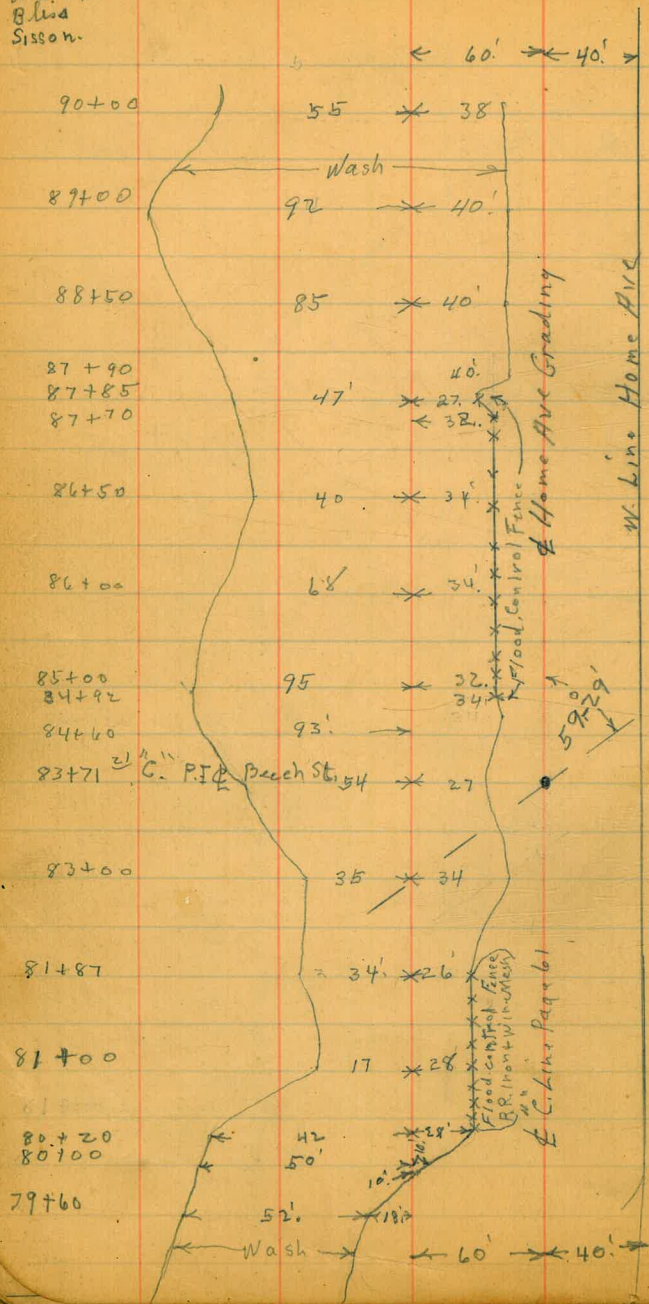 Bliss
Sisson.
60' 40'
90+00 55 38
Wash
89+00 92 40'
88+50 85 40'
87+90 40'
87+85 47' 27
87+70 32
86+50 40 34'
86+00 68 34'
85+00 95 32
84+92 34
84+60 93'
83+71 21 "C." P.I ℄ Beech St. 54 27
83+00 35 34
81+87 34' 26'
81+00 17 28
80+20 42 28'
80+00 50'
10'
79+60 52' 18'
Wash 60' 40'
Flood Control Fence
℄ Home Ave Grading
W. Line Home Ave
59°29'
Flood control Fence
R.R. Iron + Wire Mesh
℄ "C" Line Page 61